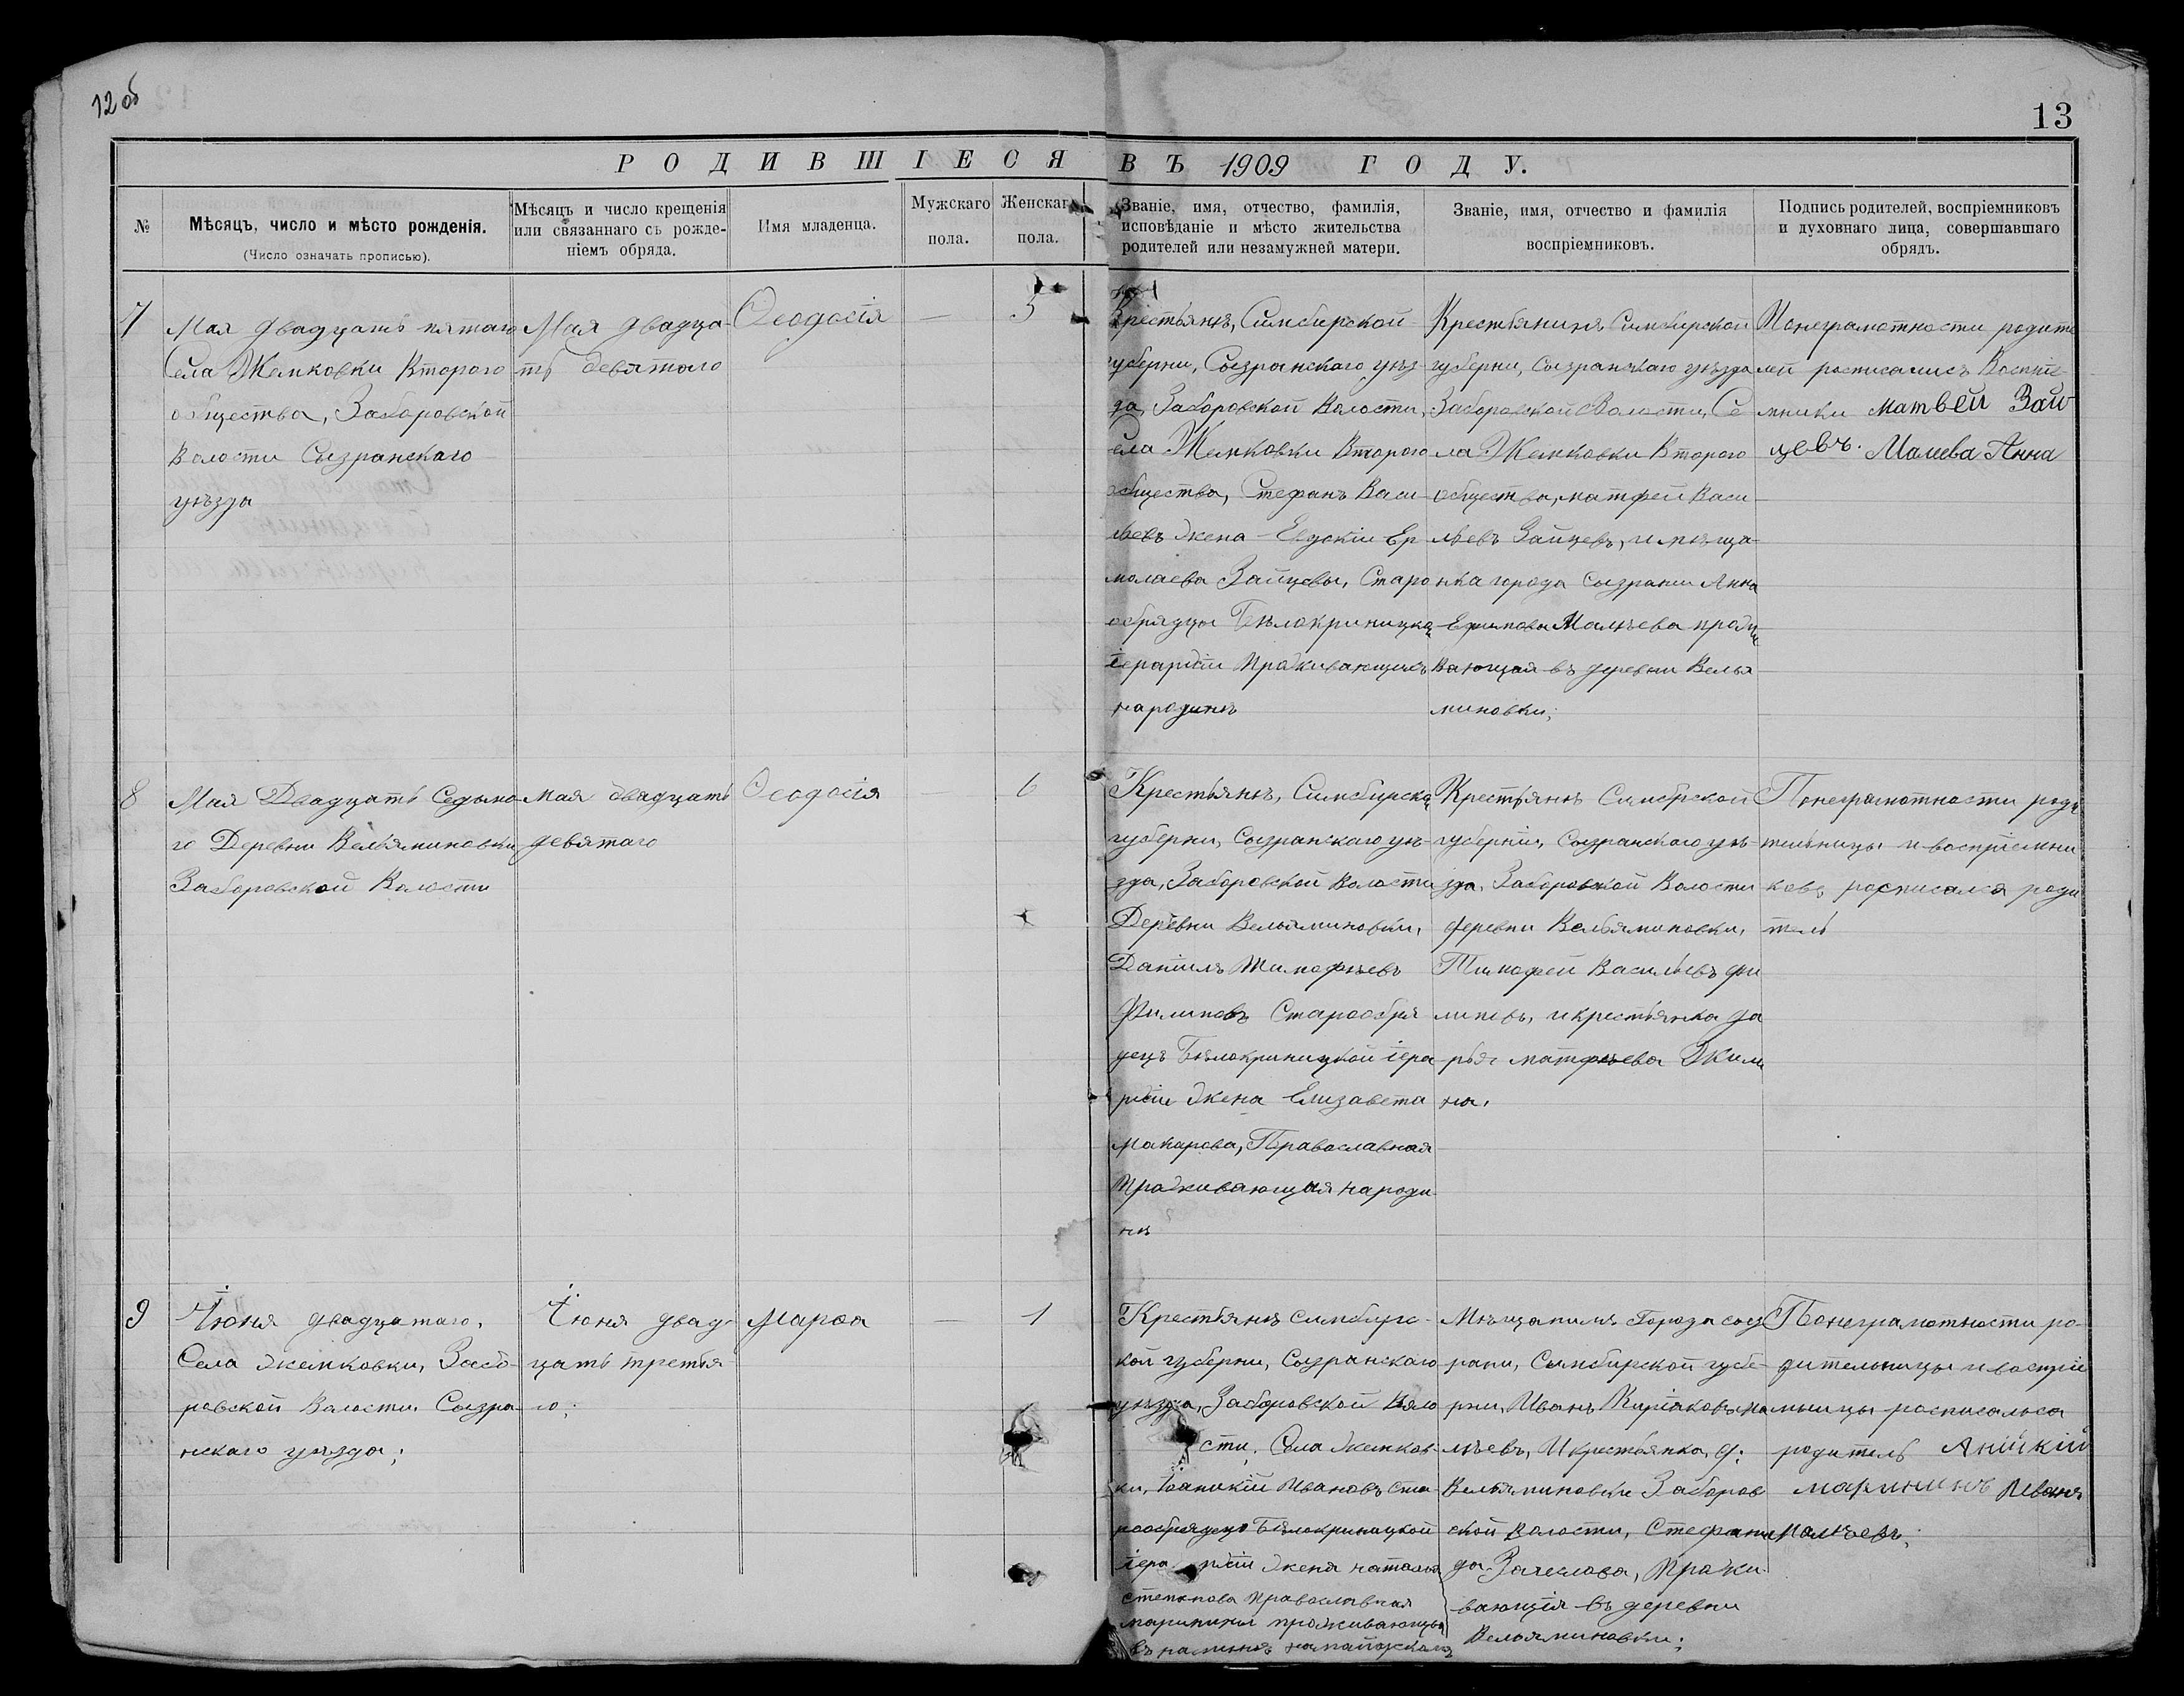 12 об
13
РОДИВШІЕСЯ ВЪ 1909 ГОДУ.
№
Мѣсяцъ, число и мѣсто рожденія.
(Число означать прописью).
Мѣсяцъ и число крещенія
или связаннаго съ рожде-
ніемъ обряда.
Имя младенца.
Мужскаго
пола.
Женскаго
пола.
Званіе, имя, отчество, фамилія,
исповѣданіе и мѣсто жительства
родителей или незамужней матери.
Званіе, имя, отчество и фамилія
воспріемниковъ.
Подпись родителей, воспріемниковъ
и духовнаго лица, совершавшаго
обрядъ.
7
Мая двадцать пятаго
Села Жемковки Второго
общества, Заборовской
Волости Сызранскаго
уѣзда
Мая двадца-
ть девятаго
Ѳеодосія
—
5
Крестьянѣ, Симбирской
губерни, Сызранскаго уѣз-
да, Заборовской Волости,
Села Жемковки Второго
общества, Стефанъ Васи-
льевъ жена Евдокіи Ер
молаева Зайцевы, Старо
обрядцы Бѣлокриницкой
іерархіи Проживающихъ
народинѣ
Крестьянинъ Симбирской
губерни, Сызранскаго уѣзда
Заборовской Волости, Се
ла Жемковки Второго
общества, матфей Васи
льевъ Зайцевъ, и мѣща-
нка города Сызрани Анна
Ефимова Малѣева прожи
вающая въ деревни Велья
миновки;
Понеграмотности родите
лей росписались Воспріе
мники Матвей Зай
цевъ. Малеева Анна
8
Мая Двадцать Седьмо
го Деревни Вельяминовки
Заборовской Волости
Мая двадцать
девятаго
Ѳеодосія
—
6
Крестьянѣ, Симбирской
губерни, Сызранскаго уѣ-
зда, Заборовской Волости
Деревни Вельяминовки,
Даніилъ Тимофѣевъ
Филиповъ Старообря
децъ Бѣлокриницкой іера
рхіи жена Елизавета
макарова, Православная
Проживающыя народи
нѣ
Крестьянѣ Симбрской
губерніи, Сызранскаго уѣ-
зда, Заборовской Волости
деревни Вельяминовки,
Тимофей Васильевъ Фи
липовъ, и крестьянка да
рья матфѣева Жили
на.
Понеграмотности роди
тельницы и воспріемни
ковъ росписался роди
тель
9
Іюня двадцатаго,
Села жемковки, Забо-
ровской Волости Сызра
нскаго уѣзда;
Іюня двад
цать третья
го;
Марѳа
—
1
Крестьянѣ симбирс-
кой губерни, Сызранскаго
уѣзда, Заборовской Воло
сти, Села жемков-
ки, Іоаникій Ивановъ ста
рообрядецъ Бѣлокриницкой
іера рхіи жена наталья
степанова православная
маринины проживающыя
въ
Мѣщанинъ города Сыз
рани, Симбирской губе-
рни, Иванъ Киріаковъ ма
лѣевъ, И крестьянка, д:
Вельяминовки Заборов
ской Волости, Стефани
да, Прожи
вающія въ деревни
Вельяминовки;
Понеграмотности ро-
дительницы и воспріе
мницы росписалься
родитель Анийкій
маринин Иванъ
малѣевъ.